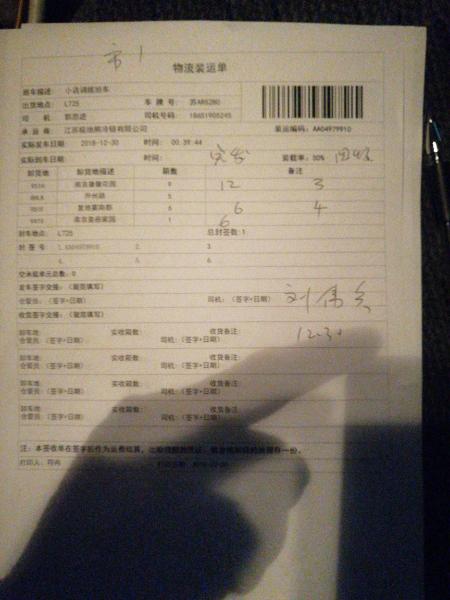 市1
物流装运单
班车描述： 小店调拨班车
出货地点： L725 车 牌 号： 苏AR52B0
司 机： 郭思进 司机号码： 18651905245
承 运 商： 江苏极地熊冷链有限公司 装运编码： AA04979910
实际发车日期： 2018-12-30 时间： 00:39:44
实际到车日期： 时间： 实发 装载率： 50% 回收
卸货地 卸货地描述 箱数 备注
9 12 3
升州路 5
6 6 4
1 6
封车地点： L725 总封签数:1
封 签 号 1.AA04979910 2. 3
4. 5. 6.
交米底单元总数： 0
发车签字交接：（装货填写）
仓管员：（签字+日期） 司机：（签字+日期） 刘
收货签字交接：（卸货填写） 12.30
卸车地: 实收箱数: 收货备注:
仓管员：（签字+日期） 司机：（签字+日期）
卸车地: 实收箱数: 收货备注:
仓管员：（签字+日期） 司机：（签字+日期）
卸车地: 实收箱数: 收货备注:
仓管员：（签字+日期） 司机：（签字+日期）
卸车地: 实收箱数: 收货备注:
仓管员：（签字+日期） 司机：（签字+日期）
注：本签收单在签字后作为运费结算，
打印人： 打印日期: